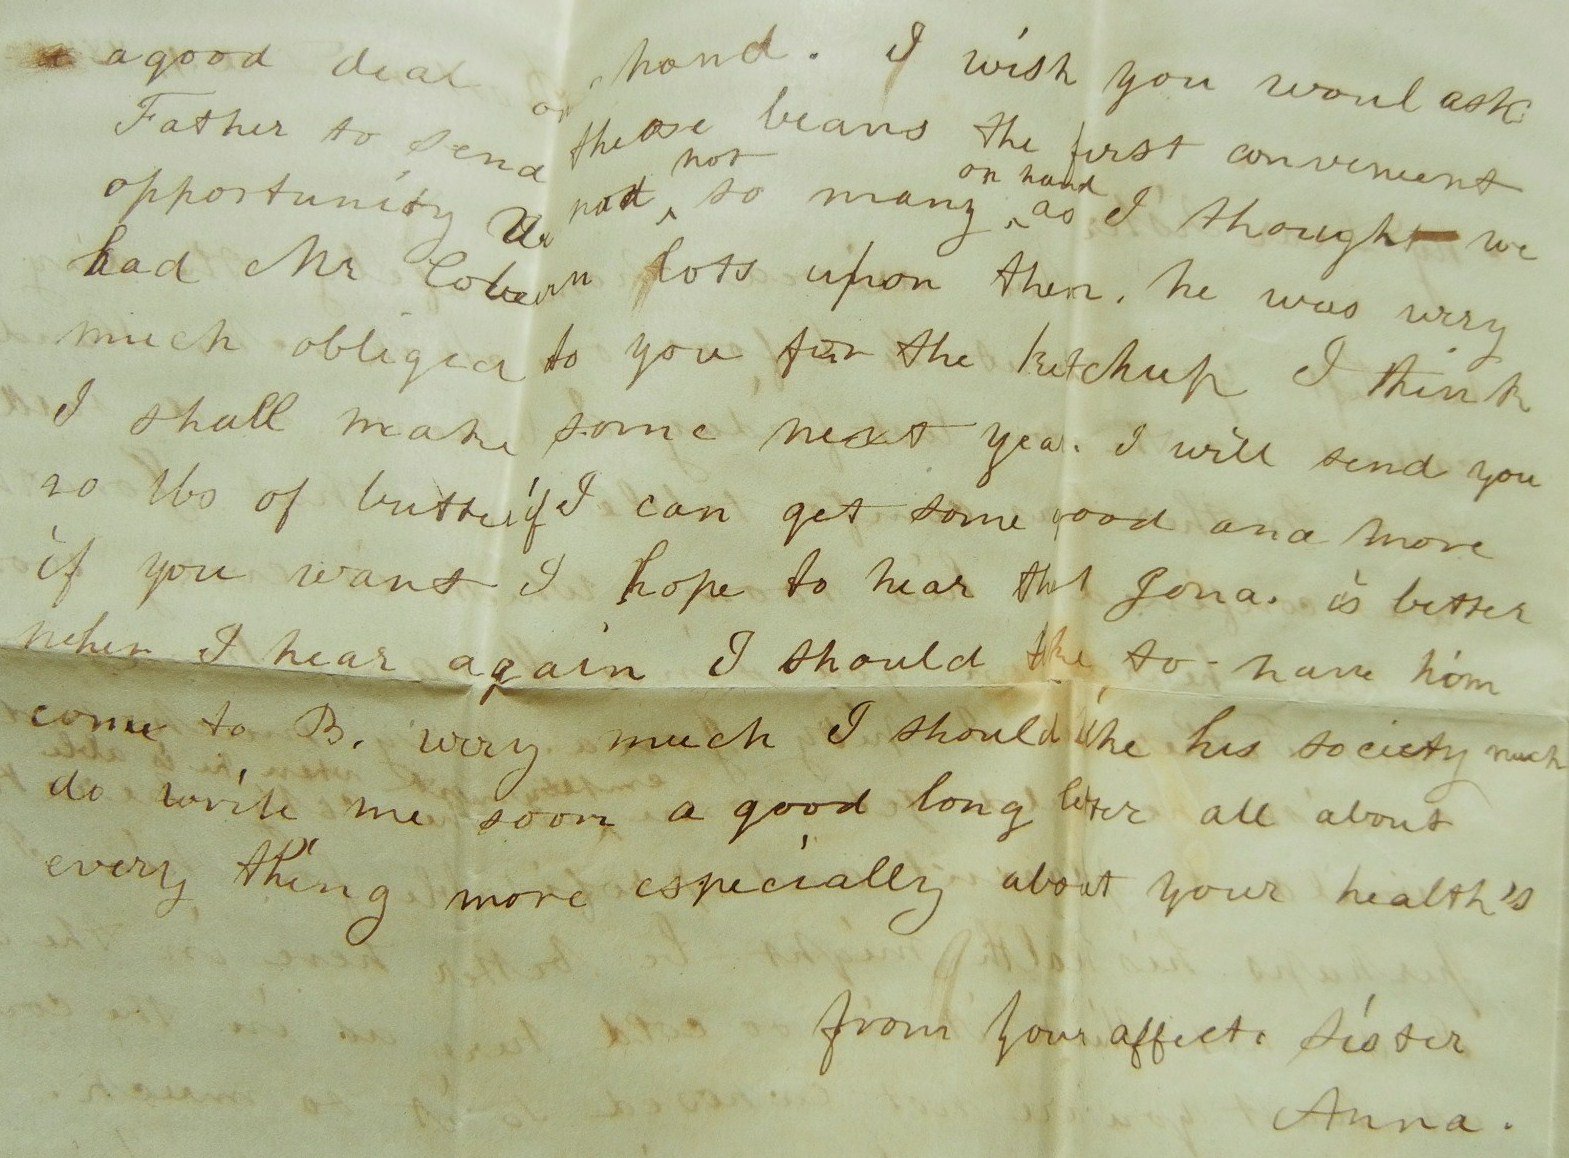 a good deal on hand. I wish you woul ask
Father to send these beans the first convenient
opportunity We had not so many on hand as I thought we
had Mr Coburn lots upon them, he was very
much obliged to you for the ketchup I think
I shall make some next yea. I will send you
20 lbs of butter if I can get some good and more
if you want I hope to hear that Jona. is better
when I hear again I should like to have him
come to B. very much I should like his society much
do write me soon a good long letter all about
every thing more especially about your health's
from your affect. sister
Anna.